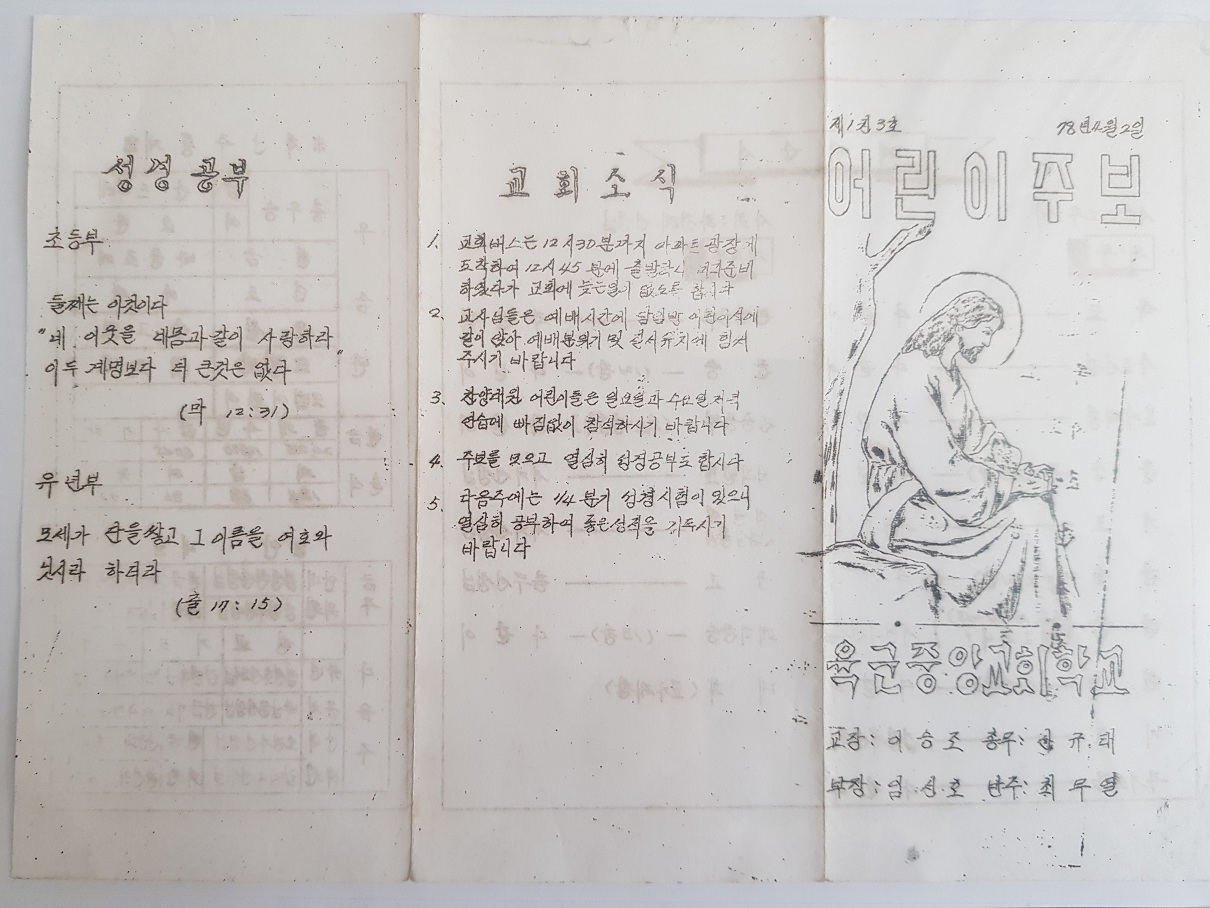 성경공부
초등부
둘째는 이것이다
"네 이웃을 네몸과같이 사랑하라
이두 계명보다 더 큰것은 없다"
(막 12:31)
유년부
모세가 단을쌓고 그 이름을 여호와
닛시라 하더라
(출 17:15)
교회소식
1. 교회버스는 12시30분까지 아파트 광장에
도착하여 12시45분에 출발하니
하였다가 교회에 늦는일이 없도록 합시다
2. 교사님들은 예배시간에 담임반 어린이석에
같이 앉아 예배분위기 및 질서유지에 힘써
주시기 바랍니다
3. 찬양대원 어린이들은 일요일과 수요일저녁
연습에 빠짐없이 참석하시기 바랍니다
4. 주보를 모으고 열심히 성경공부도 합시다
5. 다음주에는 1/4분기 성경시험이 있으니
열심히 공부하여 좋은성적을 거두시기
바랍니다
제1권3호 78년4월2일
어린이주보
육군중앙교회학교
교장: 이승조 총무: 규태
부장: 임신호 반주: 최무열